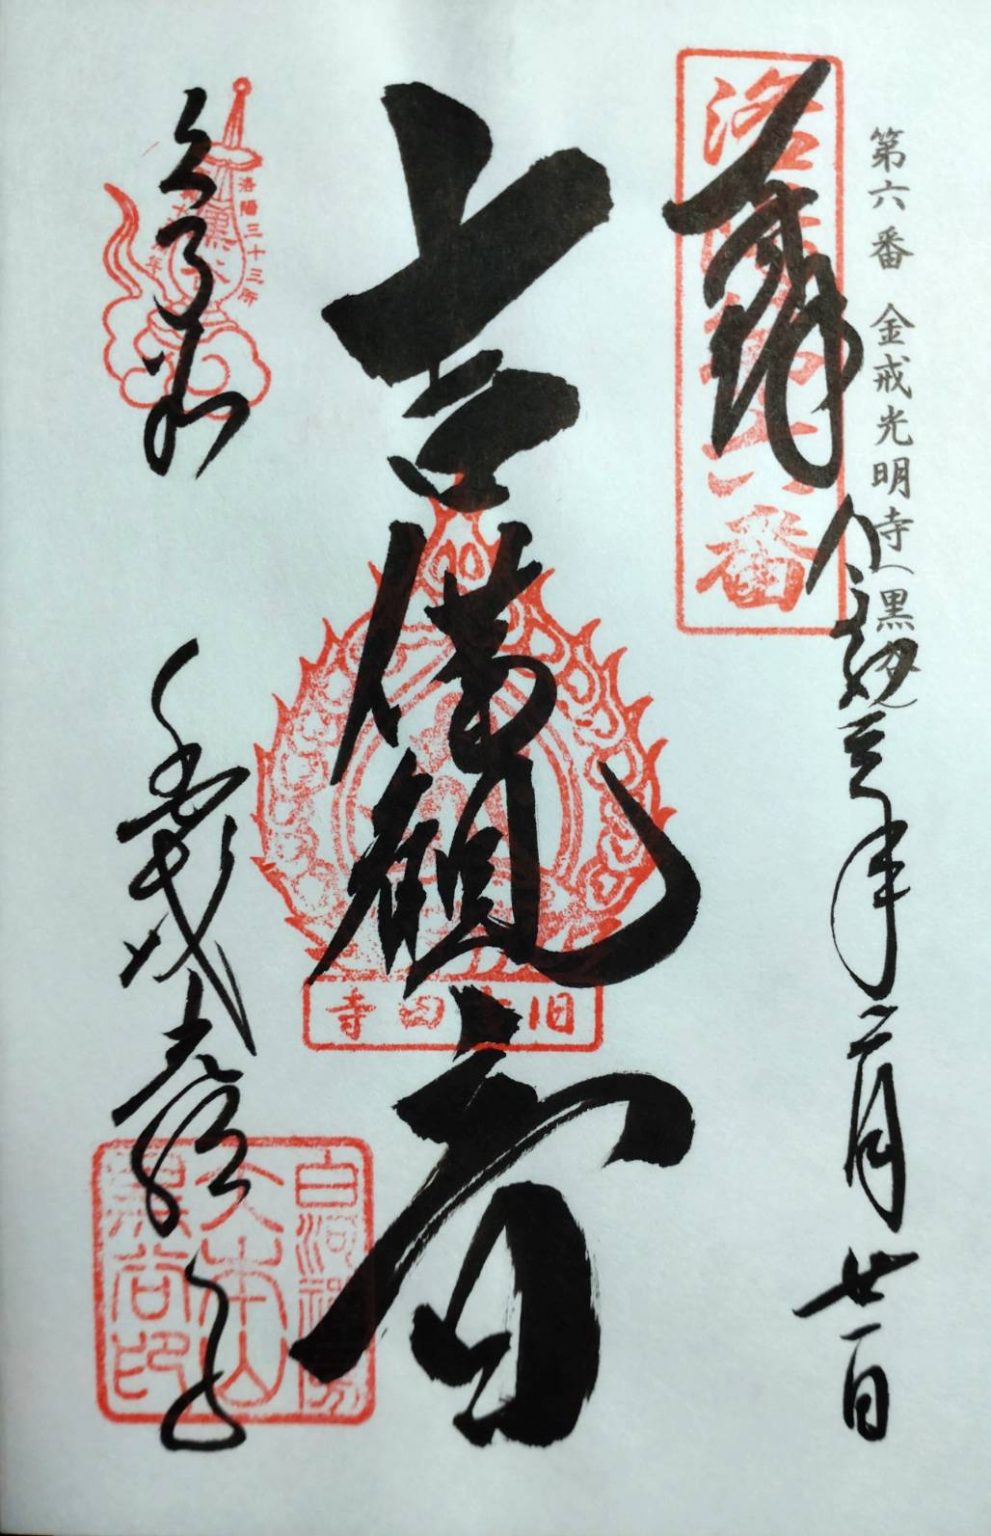 第六番 金戒光明寺(黒
奉拝
令和三年二月廿一日
洛陽第六番
吉備観音
旧吉田寺
くろ谷
金戒光明寺
洛陽三十三所
白河禅房
大本山
黒谷印